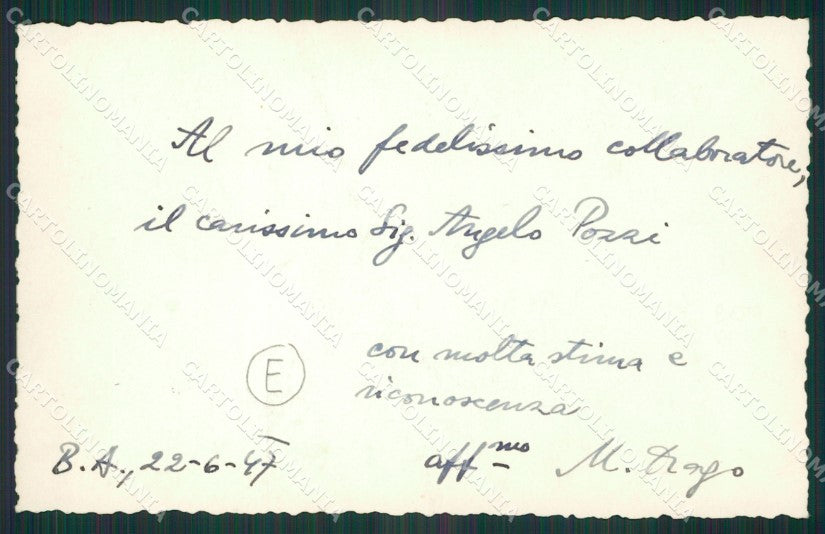 Al mio fedelissimo collaboratore,
il carissimo Sig. Angelo Pozzi
con molta stima e
riconoscenza
E
B.A., 22-6-47
aff.mo M. Drago
CARTOLINOMANIA